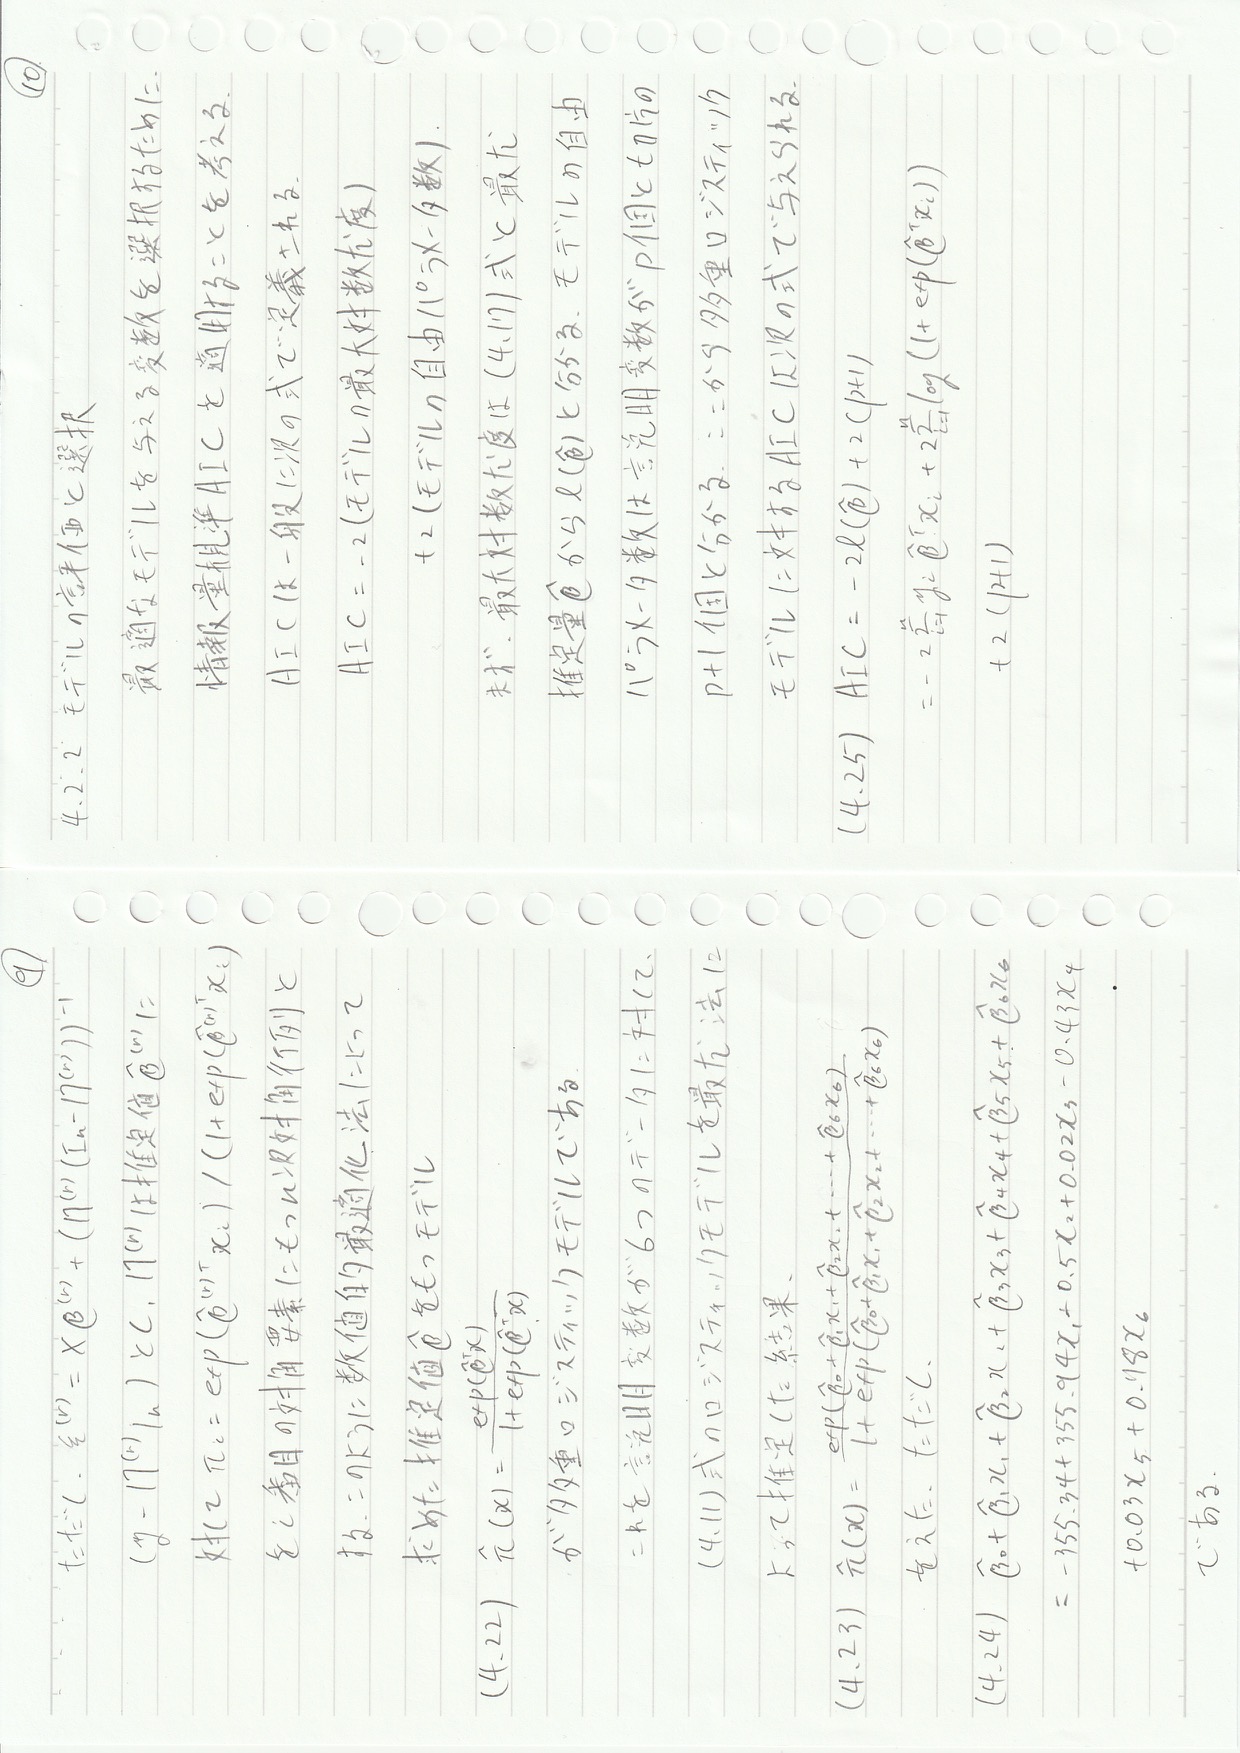 ⑨
ただし、ξ^(r) = Xβ^(r) + (Π^(r)(In-Π^(r)))^-1
(y - Π^(r)1n) とし、Π^(r)は推定値β̂^(r)に
対して πi = exp(β̂^(r)T xi) / (1+exp(β̂^(r)T xi)
をi番目の対角要素にもつn次対角行列と
する。このように数値的最適化法によって
求めた推定値β̂をもつモデル
(4.22) π̂(x) = exp(β̂^T x) / 1+exp(β̂^T x)
が多重ロジスティックモデルである。
これを説明変数が6つのデータに対して、
(4.11)式のロジスティックモデルを最尤法に
よって推定した結果、
(4.23) π̂(x) = exp(β̂0+β̂1x1+β̂2x2+…+β̂6x6) / 1+exp(β̂0+β̂1x1+β̂2x2+…+β̂6x6)
をえた。ただし、
(4.24) β̂0+β̂1x1+β̂2x2+β̂3x3+β̂4x4+β̂5x5+β̂6x6
= -355.34+355.94x1-0.5x2+0.02x3-0.43x4
+0.03x5+0.78x6
である。
⑩
4.2.2 モデルの評価と選択
最適なモデルを与える変数を選択するために、
情報量規準AICを適用することを考える。
AICは一般に次の式で定義される。
AIC = -2(モデルの最大対数尤度)
+2(モデルの自由パラメータ数).
まず、最大対数尤度は(4.17)式と最尤
推定量β̂からl(β̂)と分かる。モデルの自由
パラメータ数は説明変数がp個と切片の
p+1個と分かる。ここから多重ロジスティック
モデルに対するAICは次の式で与えられる。
(4.25) AIC = -2l(β̂)+2(p+1)
= -2 Σ_{i=1}^n yi β̂^T xi + 2 Σ_{i=1}^n log(1+exp(β̂^T xi))
+2(p+1)